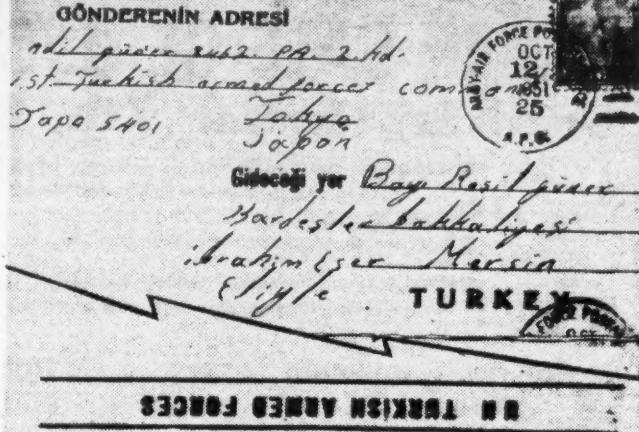 GÖNDERENİN ADRESİ
adil güner 8462 PA. 2. hd.
ist. Turkish armed forces command
Japa 5401 Tokyo
Japon
ARMY-AIR FORCE POSTAL
OCT
12
1951
25
A.P.O.
Gideceği yer Bayı Reşit güner
Kardeşler bakkaliyesi
ibrahim Eser Mersin
Eliyle TURKEY
FORCE POSTAL
OCT
UN TURKISH ARMED FORCES